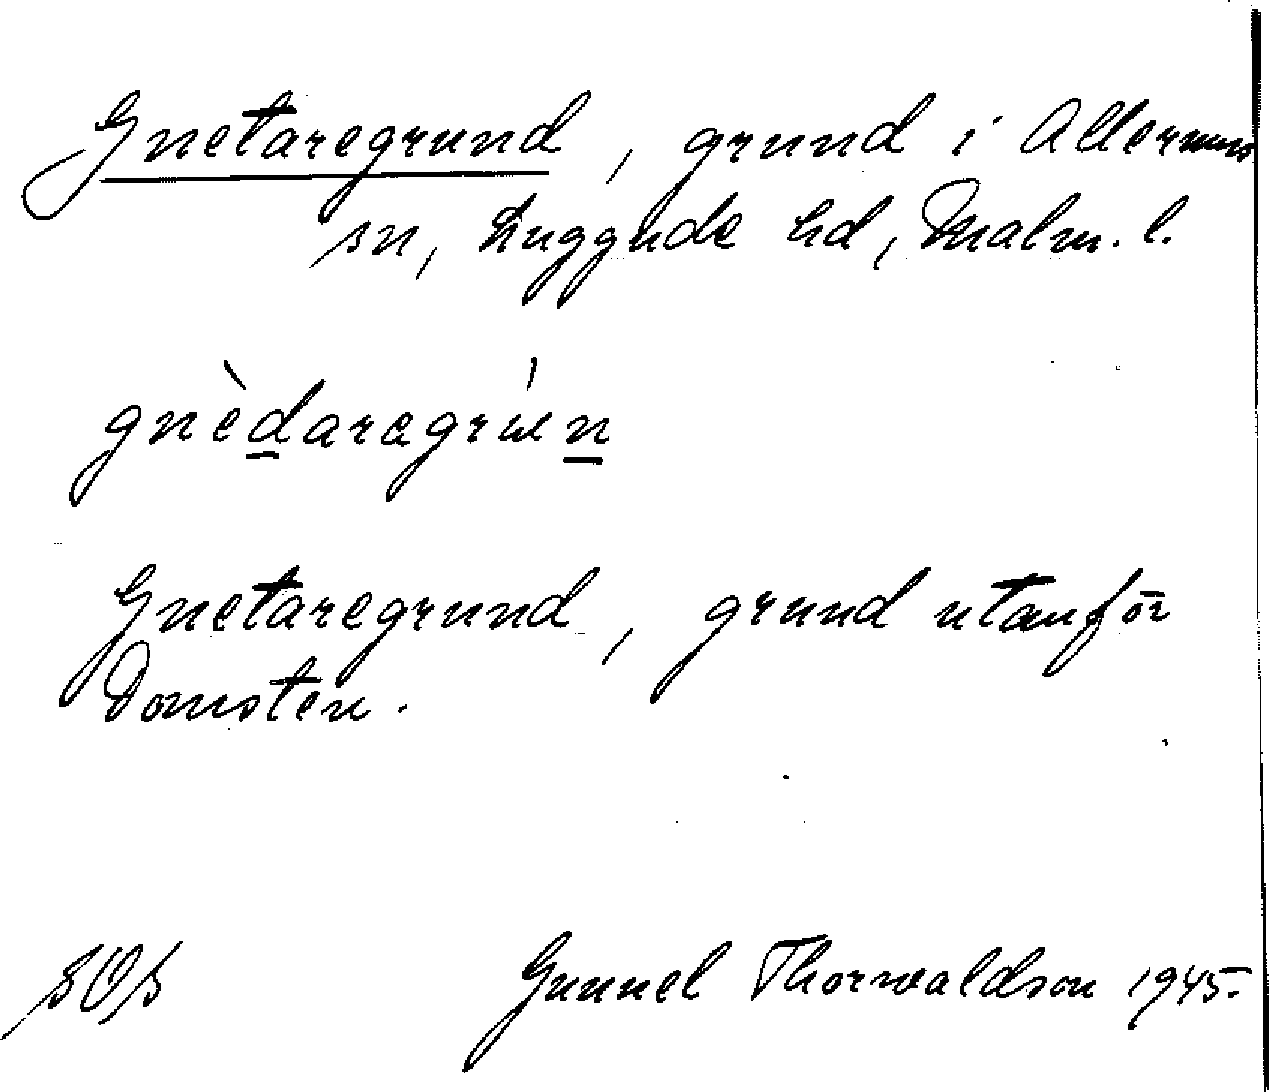 Gnetaregrund, grund i Allerums
sn, Luggude hd, Malm. l.
gnèdaregrúen
Gnetaregrund, grund utanför
Domsten.
SOS Gunnel Thorwaldson 1945.